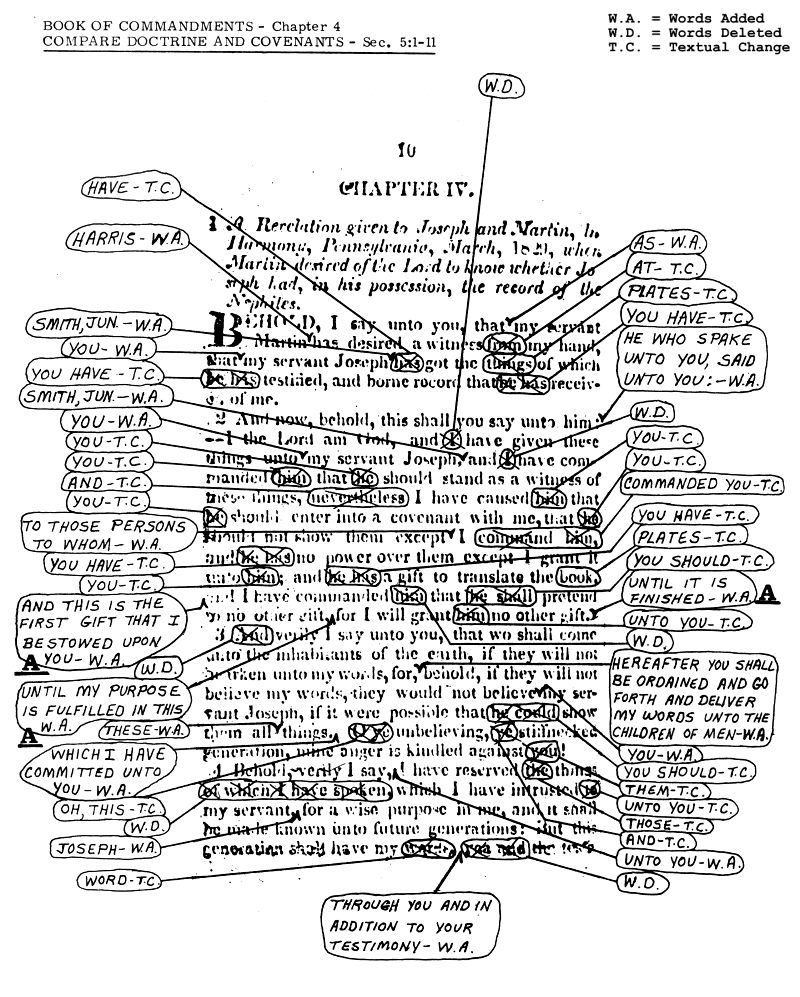 BOOK OF COMMANDMENTS - Chapter 4
COMPARE DOCTRINE AND COVENANTS - Sec. 5:1-11
W.A. = Words Added
W.D. = Words Deleted
T.C. = Textual Change
W.D.
HAVE - T.C.
HARRIS - W.A.
SMITH, JUN. - W.A.
YOU - W.A.
YOU HAVE - T.C.
SMITH, JUN. - W.A.
YOU - W.A.
YOU - T.C.
YOU - T.C.
AND - T.C.
YOU - T.C.
TO THOSE PERSONS
TO WHOM - W.A.
YOU HAVE - T.C.
YOU - T.C.
AND THIS IS THE
FIRST GIFT THAT I
BESTOWED UPON
A YOU - W.A.
W.D.
UNTIL MY PURPOSE
IS FULFILLED IN THIS
W.A.
A
THESE - W.A.
WHICH I HAVE
COMMITTED UNTO
YOU - W.A.
OH, THIS - T.C.
W.D.
JOSEPH - W.A.
WORD - T.C.
10
CHAPTER IV.
1 A Revelation given to Joseph and Martin, in
Harmony, Pennsylvania, March, 1829, when
Martin desired of the Lord to know whether Jo
seph had, in his possession, the record of the
Nephites.
BEHOLD, I say unto you, that my servant
Martin has desired a witness from my hand,
that my servant Joseph has got the things of which
he has testified, and borne record that he has receiv-
ed of me.
2 And now, behold, this shall you say unto him:
—I the Lord am God, and I have given these
things unto my servant Joseph, and I have com
manded him that he should stand as a witness of
these things, nevertheless I have caused him that
he should enter into a covenant with me, that he
should not show them except I command him,
and he has no power over them except I grant it
unto him; and he has a gift to translate the book,
and I have commanded him that he shall pretend
to no other gift, for I will grant him no other gift.
3 And verily I say unto you, that wo shall come
unto the inhabitants of the earth, if they will not
hearken unto my words, for, behold, if they will not
believe my words, they would not believe my ser-
vant Joseph, if it were possible that he could show
them all things. O ye unbelieving, ye stiffnecked
generation, mine anger is kindled against you!
4 Behold, verily I say, I have reserved the things
of which I have spoken, which I have intrusted to
my servant, for a wise purpose in me, and it shall
be made known unto future generations: But this
generation shall have my words, you and the tes-
AS - W.A.
AT - T.C.
PLATES - T.C.
YOU HAVE - T.C.
HE WHO SPAKE
UNTO YOU, SAID
UNTO YOU: - W.A.
W.D.
YOU - T.C.
YOU - T.C.
COMMANDED YOU - T.C.
YOU HAVE - T.C.
PLATES - T.C.
YOU SHOULD - T.C.
UNTIL IT IS
FINISHED - W.A. A
UNTO YOU - T.C.
W.D.
HEREAFTER YOU SHALL
BE ORDAINED AND GO
FORTH AND DELIVER
MY WORDS UNTO THE
CHILDREN OF MEN - W.A.
YOU - W.A.
YOU SHOULD - T.C.
THEM - T.C.
UNTO YOU - T.C.
THOSE - T.C.
AND - T.C.
UNTO YOU - W.A.
W.D.
THROUGH YOU AND IN
ADDITION TO YOUR
TESTIMONY - W.A.